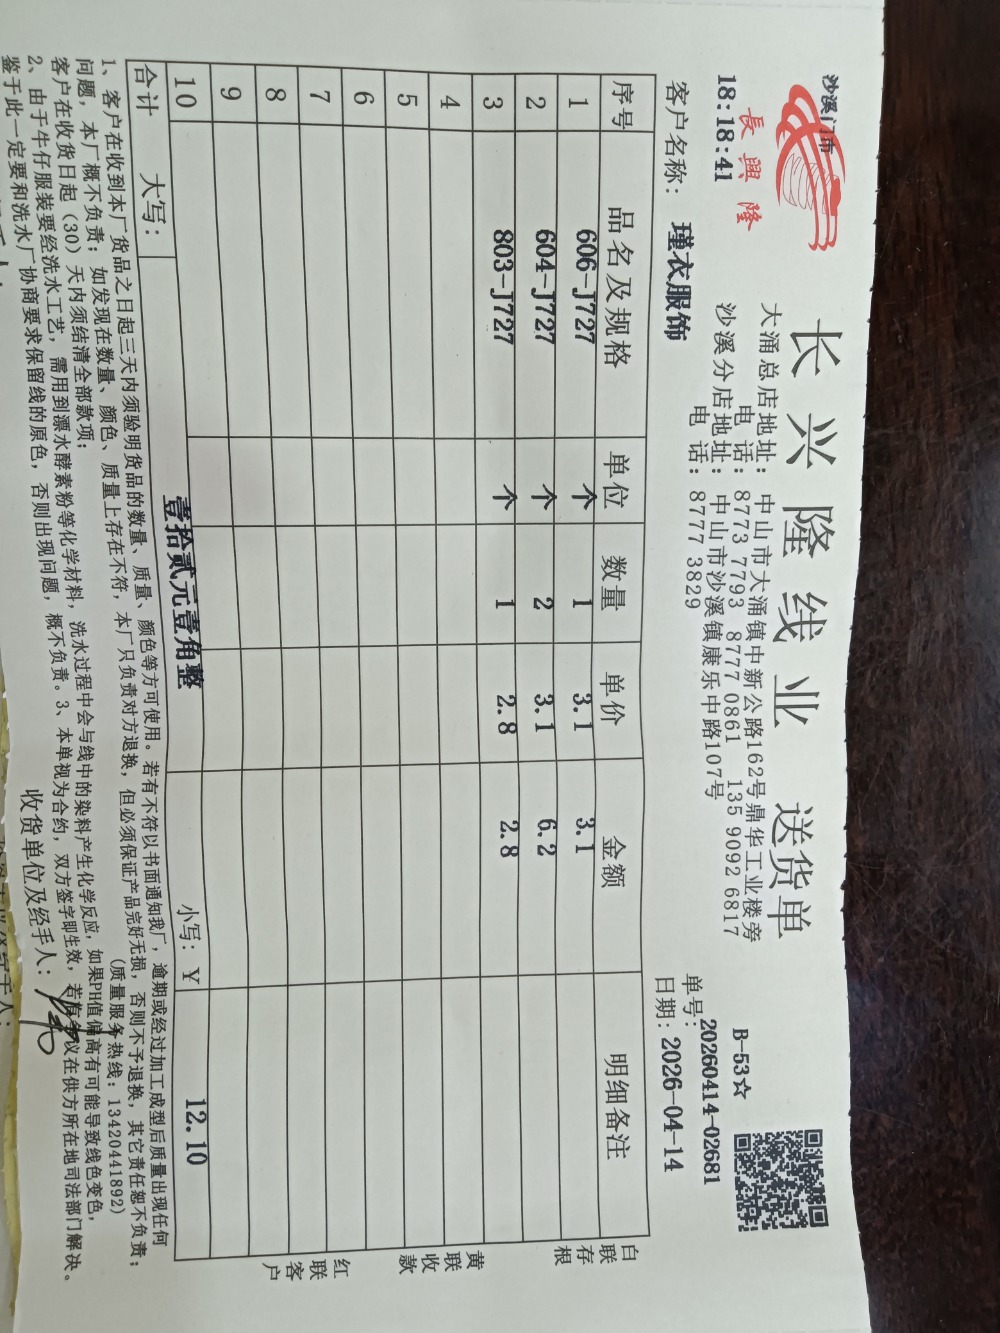 沙溪门市
18:18:41
長興隆
长兴隆线业 送货单
大涌总店地址：中山市大涌镇中新公路162号鼎华工业楼旁
电 话：8773 7793 8777 0861 135 9092 6817
沙溪分店地址：中山市沙溪镇康乐中路107号
电 话：8777 3829
B-53☆
单号：20260414-02681
客户名称：瑾衣服饰
日期：2026-04-14
序号 品名及规格 单位 数量 单价 金额 明细备注
1 606-J727 个 1 3.1 3.1
2 604-J727 个 2 3.1 6.2
3 803-J727 个 1 2.8 2.8
4
5
6
7
8
9
10
合计 大写：壹拾贰元壹角整 小写：¥ 12.10
白联存根
黄联收款
红联客户
1、客户在收到本厂货品之日起三天内须验明货品的数量、质量、颜色等方可使用。若有不符以书面通知我厂，逾期或经过加工成型后质量出现任何
问题，本厂概不负责；如发现在数量、颜色、质量上存在不符，本厂只负责对方退换，但必须保证产品完好无损，否则不予退换，其它责任恕不负责；
客户在收货日起（30）天内须结清全部款项； (质量服务热线：13420441892)
2、由于牛仔服装要经洗水工艺，需用到漂水酵素粉等化学材料，洗水过程中会与线中的染料产生化学反应，如果PH值偏高有可能导致线色变色，
鉴于此一定要和洗水厂协商要求保留线的原色，否则出现问题，概不负责。3、本单视为合约，双方签字即生效，若有争议在供方所在地司法部门解决。
收货单位及经手人：